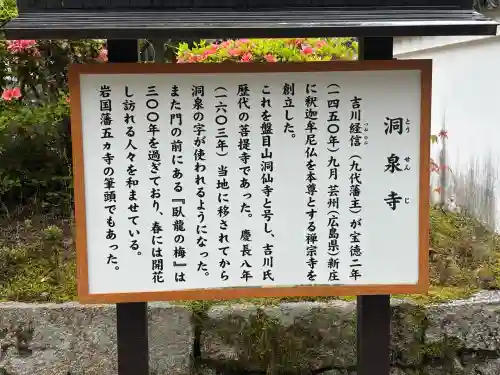 洞泉寺
とうせんじ
吉川経信（九代藩主）が宝徳二年
つねのぶ
（一四五〇年）九月 芸州（広島県）新庄
に釈迦牟尼仏を本尊とする禅宗寺を
創立した。
これを盤目山洞仙寺と号し、吉川氏
歴代の菩提寺であった。慶長八年
（一六〇三年）当地に移されてから
洞泉の字が使われるようになった。
また門の前にある『臥龍の梅』は
三〇〇年を過ぎており、春には開花
し訪れる人々を和ませている。
岩国藩五ヵ寺の筆頭でもあった。